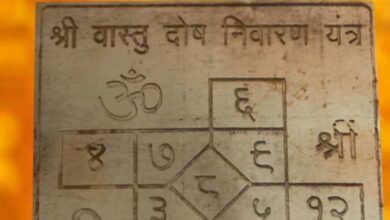 श्री वास्तु दोष निवारण यंत्र
ॐ ६
४ ७ ९ श्रीं
८
३ १२